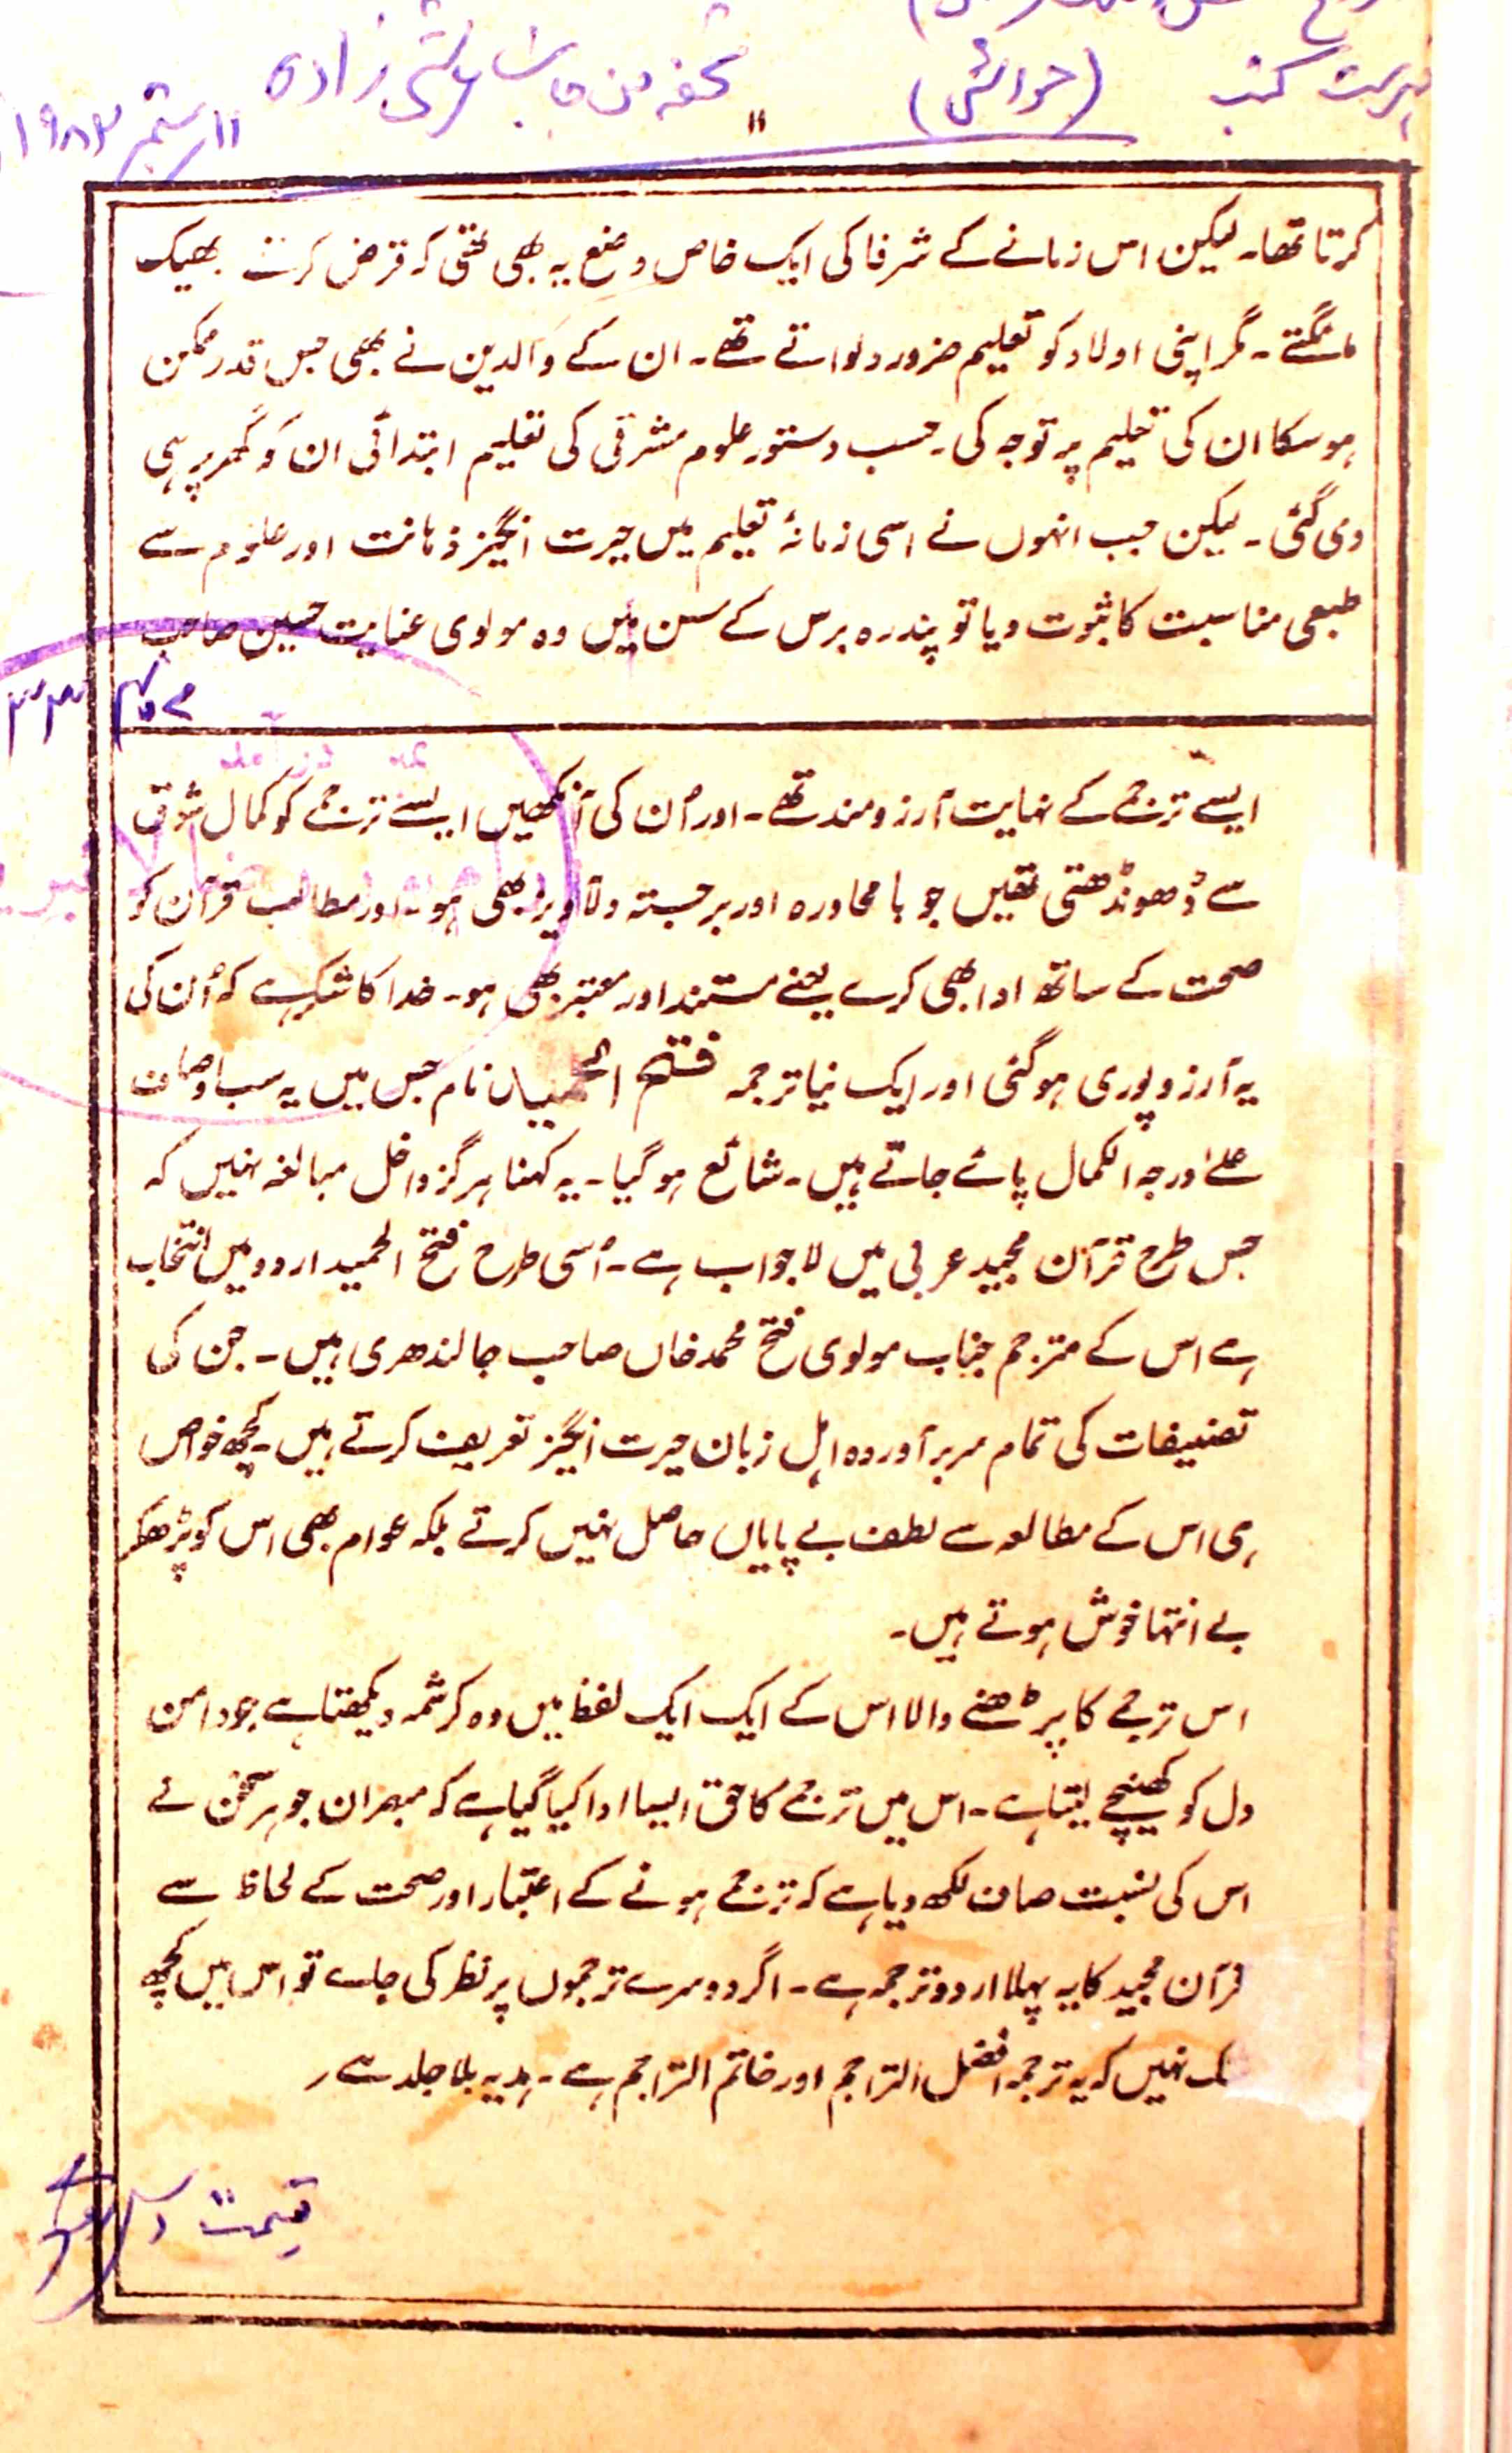 فہرست کتب (حواشی) تحفہ من جانب زادہ
۱۱ ستمبر ۱۹۸۳
۱۱
کرتا تھا۔ لیکن اس زمانے کے شرفا کی ایک خاص وضع یہ بھی تھی کہ قرض کرتے بھیک
مانگتے۔ مگر اپنی اولاد کو تعلیم ضرور دلواتے تھے۔ ان کے والدین نے بھی جس قدر ممکن
ہو سکا ان کی تعلیم پر توجہ کی۔ حسب دستور علوم مشرقی کی تعلیم ابتدائی ان کو گھر پر ہی
دی گئی۔ لیکن جب انہوں نے اسی زمانۂ تعلیم میں حیرت انگیز ذہانت اور علوم سے
طبعی مناسبت کا ثبوت دیا تو پندرہ برس کے سن میں وہ مولوی عنایت حسین صاحب
ایسے ترجمے کے نہایت آرزومند تھے۔ اور اُن کی آنکھیں ایسے ترجمے کو کمال شوق
سے ڈھونڈھتی تھیں جو با محاورہ اور برجستہ و دلآویز بھی ہو۔ اور مطالب قرآن کو
صحت کے ساتھ ادا بھی کرے یعنے مستند اور معتبر بھی ہو۔ خدا کا شکر ہے کہ اُن کی
یہ آرزو پوری ہو گئی اور ایک نیا ترجمہ فتح الحمید نام جس میں یہ سب اوصاف
علےٰ درجہ الکمال پائے جاتے ہیں۔ شائع ہو گیا۔ یہ کہنا ہرگز داخل مبالغہ نہیں کہ
جس طرح قرآن مجید عربی میں لاجواب ہے۔ اُسی طرح فتح الحمید اردو میں انتخاب
ہے اس کے مترجم جناب مولوی فتح محمد خاں صاحب جالندھری ہیں۔ جن کی
تصنیفات کی تمام سربرآوردہ اہل زبان حیرت انگیز تعریف کرتے ہیں۔ کچھ خواص
ہی اس کے مطالعہ سے لطف بے پایاں حاصل نہیں کرتے بلکہ عوام بھی اس کو پڑھکر
بے انتہا خوش ہوتے ہیں۔
اس ترجمے کا پڑھنے والا اس کے ایک ایک لفظ میں وہ کرشمہ دیکھتا ہے جو دامن
دل کو کھینچے لیتا ہے۔ اس میں ترجمے کا حق ایسا ادا کیا گیا ہے کہ مبصران جوہر سخن نے
اس کی نسبت صاف لکھ دیا ہے کہ ترجمے ہونے کے اعتبار اور صحت کے لحاظ سے
قرآن مجید کا یہ پہلا اردو ترجمہ ہے۔ اگر دوسرے ترجموں پر نظر کی جاے تو اس میں کچھ
ک نہیں کہ یہ ترجمہ افضل التراجم اور خاتم التراجم ہے۔ ہدیہ بلا جلد سے ر
قیمت